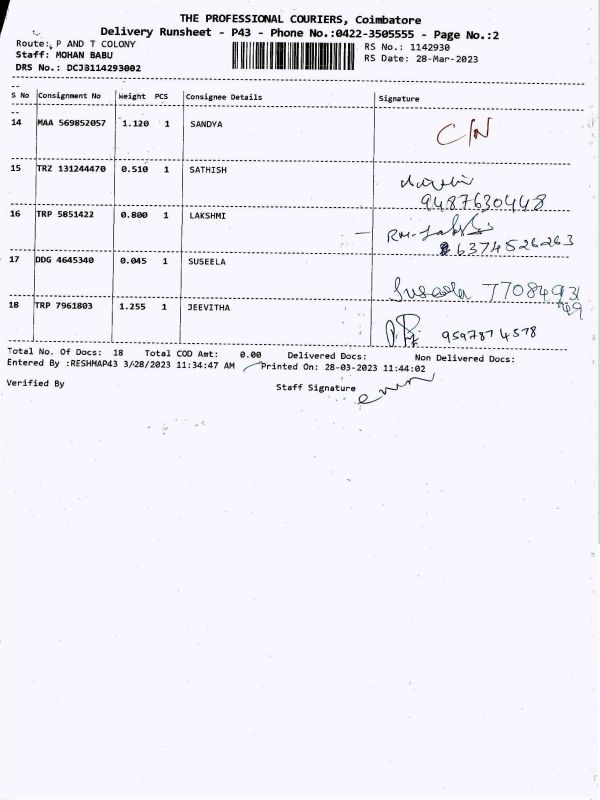 THE PROFESSIONAL COURIERS, Coimbatore
Delivery Runsheet - P43 - Phone No.:0422-3505555 - Page No.:2
Route: P AND T COLONY
RS No.: 1142930
Staff: MOHAN BABU
RS Date: 28-Mar-2023
DRS No.: DCJ3114293002
S No Consignment No Weight PCS Consignee Details Signature
14 MAA 569852057 1.120 1 SANDYA C/N
15 TRZ 131244470 0.510 1 SATHISH
9487630448
16 TRP 5851422 0.800 1 LAKSHMI
6374526263
17 DDG 4645340 0.045 1 SUSEELA
Suseela 77084931
49
18 TRP 7961803 1.255 1 JEEVITHA
9597874578
Total No. Of Docs: 18 Total COD Amt: 0.00 Delivered Docs: Non Delivered Docs:
Entered By :RESHMAP43 3/28/2023 11:34:47 AM Printed On: 28-03-2023 11:44:02
Verified By Staff Signature